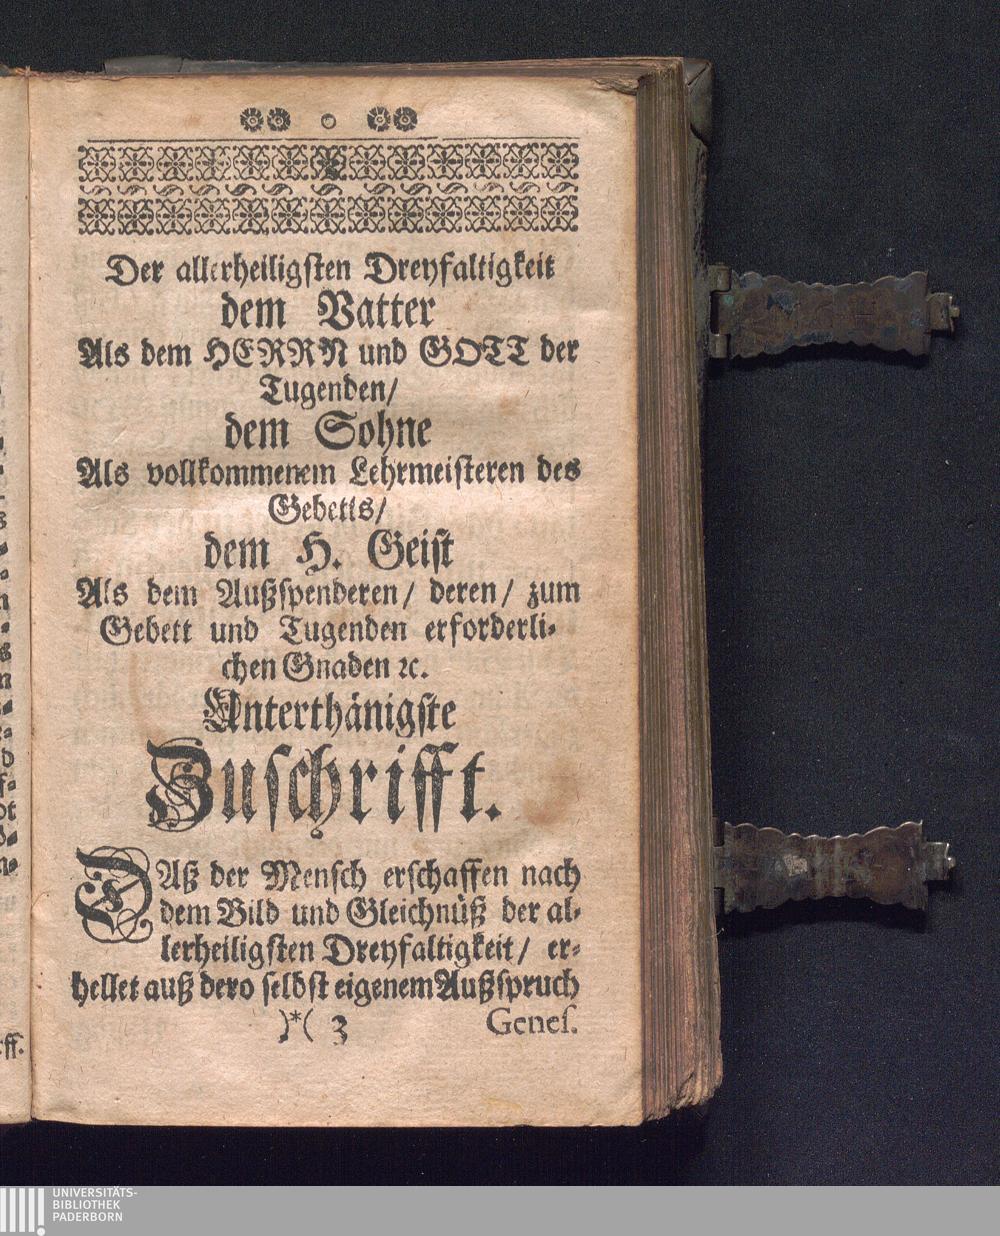 Der allerheiligsten Dreyfaltigkeit
dem Vatter
Als dem HERRN und GOTT der
Tugenden/
dem Sohne
Als vollkommenem Lehrmeisteren des
Gebetts/
dem H. Geist
Als dem Außspenderen/ deren/ zum
Gebett und Tugenden erforderli-
chen Gnaden ꝛc.
Unterthänigste
Zuschrifft.
DAß der Mensch erschaffen nach
dem Bild und Gleichnüß der al-
lerheiligsten Dreyfaltigkeit/ er-
hellet auß dero selbst eigenem Außspruch
)*( 3 Genes.
UNIVERSITÄTS-
BIBLIOTHEK
PADERBORN